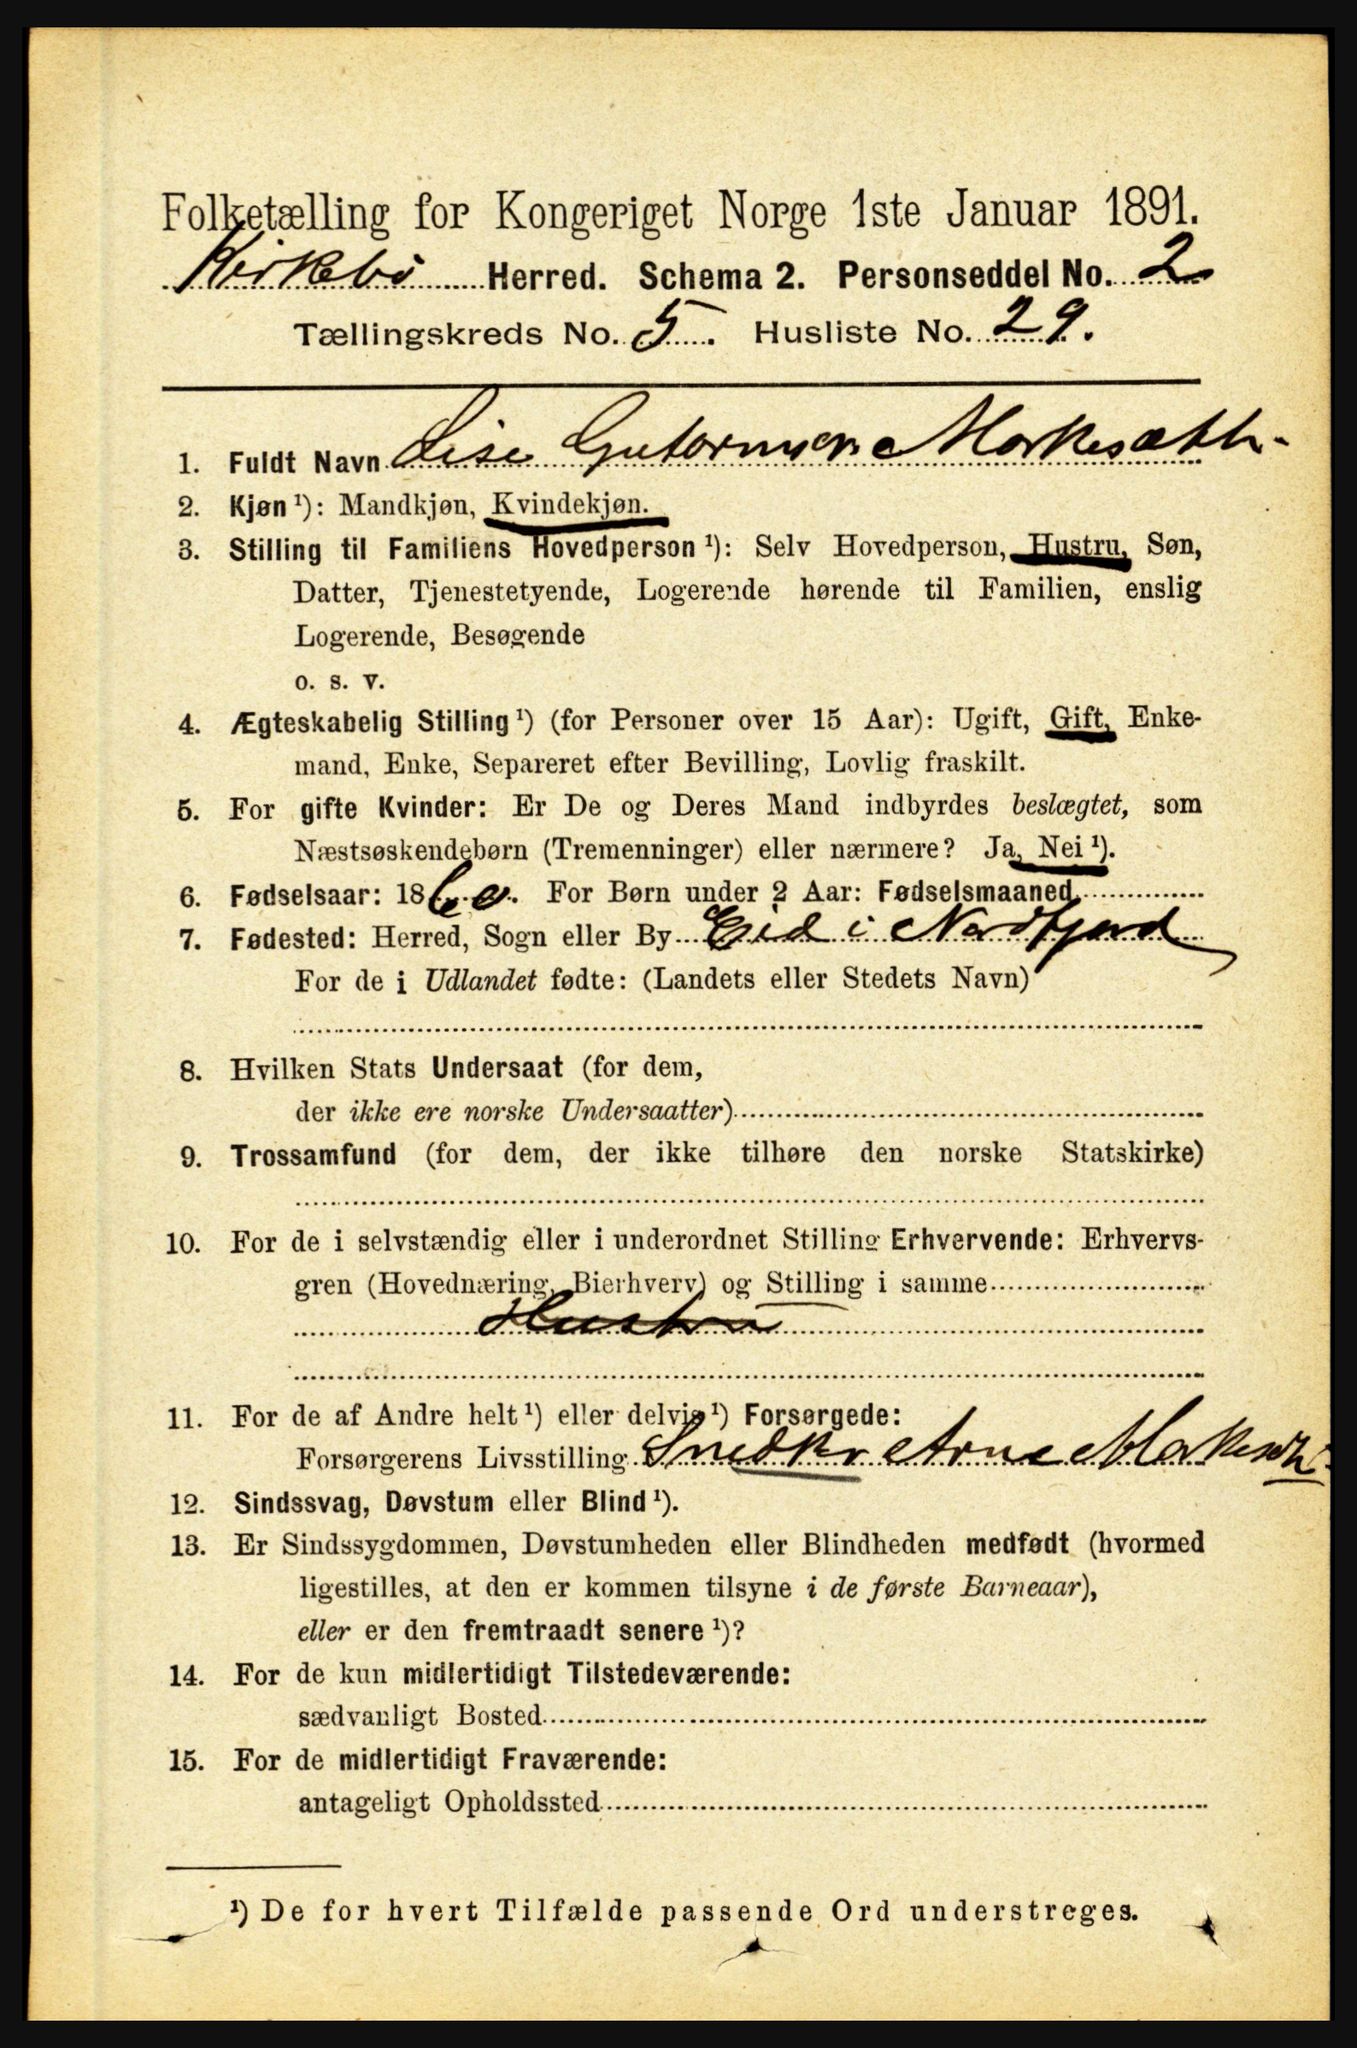 Folketælling for Kongeriget Norge 1ste Januar 1891.
Kirkebø Herred. Schema 2. Personseddel No. 2
Tællingskreds No. 5. Husliste No. 29.
1. Fuldt Navn Lise Gutormsen Morkesætt
2. Kjøn ¹): Mandkjøn, Kvindekjøn.
3. Stilling til Familiens Hovedperson ¹): Selv Hovedperson, Hustru, Søn,
Datter, Tjenestetyende, Logerende hørende til Familien, enslig
Logerende, Besøgende
o. s. v.
4. Ægteskabelig Stilling ¹) (for Personer over 15 Aar): Ugift, Gift, Enke-
mand, Enke, Separeret efter Bevilling, Lovlig fraskilt.
5. For gifte Kvinder: Er De og Deres Mand indbyrdes beslægtet, som
Næstsøskendebørn (Tremenninger) eller nærmere? Ja, Nei ¹).
6. Fødselsaar: 1860. For Børn under 2 Aar: Fødselsmaaned
7. Fødested: Herred, Sogn eller By Eid i Nordfjord
For de i Udlandet fødte: (Landets eller Stedets Navn)
8. Hvilken Stats Undersaat (for dem,
der ikke ere norske Undersaatter)
9. Trossamfund (for dem, der ikke tilhøre den norske Statskirke)
10. For de i selvstændig eller i underordnet Stilling Erhvervende: Erhvervs-
gren (Hovednæring, Bierhverv) og Stilling i samme
Hustru
11. For de af Andre helt ¹) eller delvis ¹) Forsørgede:
Forsørgerens Livsstilling Snedker Arne Morkesætt
12. Sindssvag, Døvstum eller Blind ¹).
13. Er Sindssygdommen, Døvstumheden eller Blindheden medfødt (hvormed
ligestilles, at den er kommen tilsyne i de første Barneaar),
eller er den fremtraadt senere ¹)?
14. For de kun midlertidigt Tilstedeværende:
sædvanligt Bosted
15. For de midlertidigt Fraværende:
antageligt Opholdssted
¹) De for hvert Tilfælde passende Ord understreges.